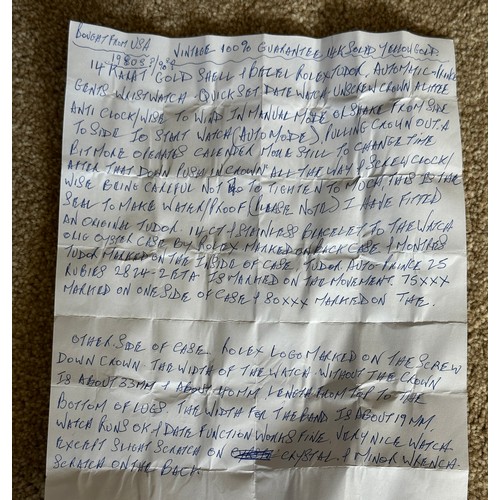 BOUGHT FROM USA
VINTAGE 100% GUARANTEE 14K SOLID YELLOW GOLD.
1980S?/90S?
14 KARAT GOLD SHELL & BEZEL ROLEX TUDOR, AUTOMATIC-PRINCE
GENTS WRISTWATCH - QUICKSET DATE WATCH UNSCREW CROWN A LITTLE
ANTI CLOCK/WISE TO WIND IN MANUAL MODE OR SHAKE FROM SIDE
TO SIDE TO START WATCH (AUTO MODE), PULLING CROWN OUT A
BIT MORE OPERATES CALENDER MORE STILL TO CHANGE TIME
AFTER THAT DOWN PUSH IN CROWN ALL THE WAY & SCREW CLOCK/
WISE BEING CAREFUL NOT TO TIGHTEN TO MUCH, THIS IS THE
SEAL TO MAKE WATER/PROOF (PLEASE NOTE) I HAVE FITTED
AN ORIGINAL TUDOR 14CT & STAINLESS BRACELET TO THE WATCH
ORIG OYSTER CASE BY ROLEX MARKED ON BACK CASE & MONTRES
TUDOR MARKED ON THE INSIDE OF CASE. TUDOR AUTO PRINCE 25
RUBIES 2824-2 ETA IS MARKED ON THE MOVEMENT. 75XXX
MARKED ON ONE SIDE OF CASE & 80XXX MARKED ON THE.
OTHER SIDE OF CASE. ROLEX LOGO MARKED ON THE SCREW
DOWN CROWN. THE WIDTH OF THE WATCH WITHOUT THE CROWN
IS ABOUT 33MM & ABOUT 40MM LENGTH FROM TOP TO THE
BOTTOM OF LUGS. THE WIDTH FOR THE BAND IS ABOUT 19MM.
WATCH RUNS OK & DATE FUNCTION WORKS FINE. VERY NICE WATCH
EXCEPT SLIGHT SCRATCH ON CRYSTAL. & MINOR WRENCH-
SCRATCH ON THE BACK.